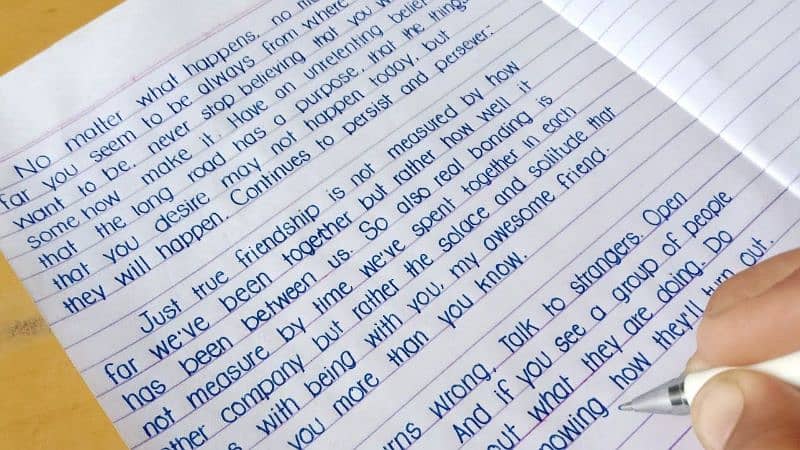 No matter what happens, no
far you seem to be always from where
want to be, never stop believing that you
some how make it. Have an unrelenting
that the long road has a purpose, that the things
that you desire may not happen today, but
they will happen. Continues to persist and persever.
Just true friendship is not measured by how
far we've been together but rather how well it
has been between us. So also real bonding is
not measure by time we've spent together in each
company but rather the solace and solitude that
with being with you, my awesome friend.
you more than you know.
wrong. Talk to strangers. Open
And if you see a group of people
what they are doing. Do
how they'll turn out.